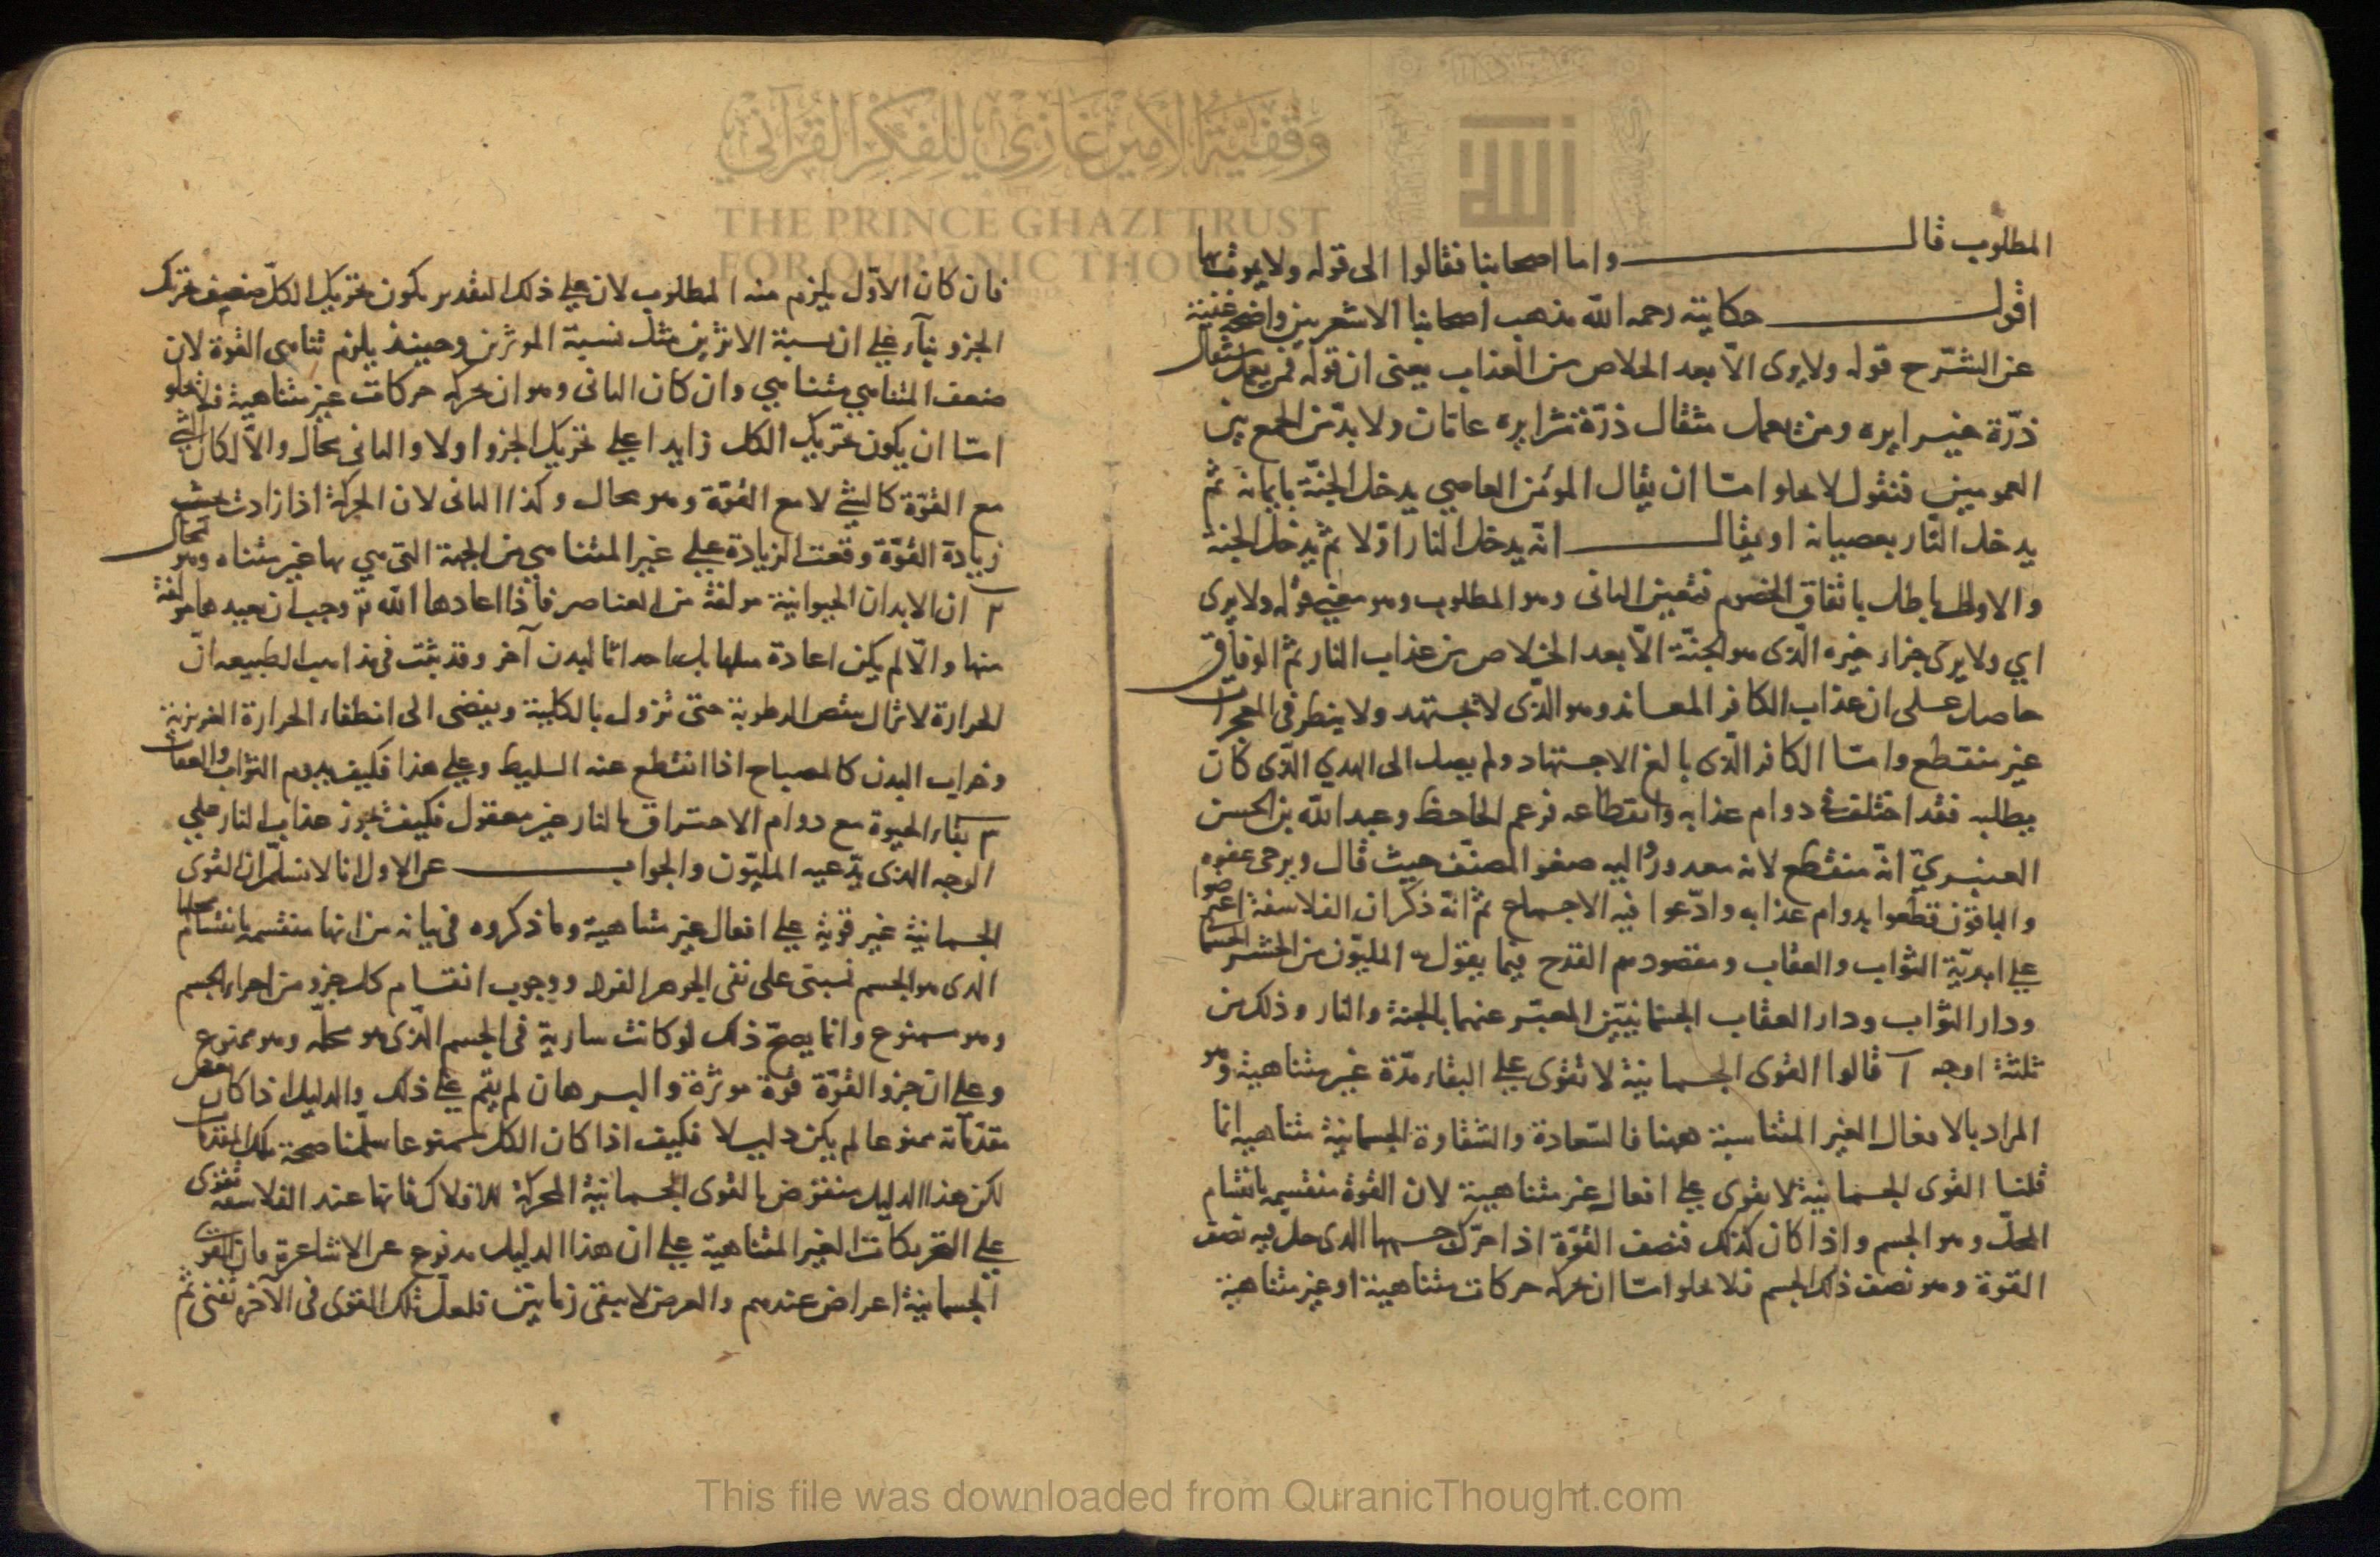 وقفية الأمير غازي للفكر القرآني
THE PRINCE GHAZI TRUST
FOR QURʾĀNIC THOUGHT
المطلوب قال واما اصحابنا فقالوا الى قوله ولا يوقنها
اقول حكايته رحمه الله مذهب اصحابنا الاشعريين واضحة غنية
عن الشرح قوله ولا يرى الا بعد الخلاص من العذاب يعنى ان قوله فمن يعمل مثقال
ذرّة خيرا يره ومن يعمل مثقال ذرّة شرا يره عامان ولا بدّ من الجمع بين
العمومين فنقول لا يخلو امّا ان يقال المؤمن العاصي يدخل الجنّة بايمانه ثم
يدخل النّار بعصيانه او يقال انّه يدخل النار اوّلا ثم يدخل الجنة
والاول باطل باتفاق الخصوم فتعين الثانى وهو المطلوب وهو معنى قوله ولا يرى
اي ولا يرى جزاء خيره الّذى هو الجنّة الّا بعد الخلاص من عذاب النار ثم الوفاق
حاصل على ان عذاب الكافر المعاند وهو الذى لا يجتهد ولا ينظر فى المعجزات
غير منقطع وامّا الكافر الّذى بالغ الاجتهاد ولم يصل الى الهدي الّذى كان
يطلبه فقد اختلف فى دوام عذابه وانقطاعه فزعم الجاحظ وعبد الله بن الحسن
العنبريّ انّه منقطع لانه معذور واليه صغو المصنّف حيث قال ويرجى عفوه
والباقون قطعوا بدوام عذابه وادّعوا فيه الاجماع ثم انه ذكر ان الفلاسفة اعترضوا
على ابديّة الثواب والعقاب ومقصودهم القدح فيما يقول به المليّون من الحشر الجسمانى
ودار الثواب ودار العقاب الجسمانيّين المعبّر عنهما بالجنة والنار وذلك من
ثلثة اوجه ١ قالوا القوى الجسمانية لا تقوى على البقاء مدّة غير متناهية وهو
المراد بالافعال الغير المتناسبة ههنا فالسّعادة والشقاوة الجسمانية متناهية انما
قلنا القوى الجسمانية لا تقوى على افعال غير متناهية لان القوة منقسمه بانقسام
المحلّ وهو الجسم واذا كان كذلك فنصف القوّة اذا حرّك جسمها الذى حل فيه نصف
القوة وهو نصف ذلك الجسم فلا يخلو امّا ان يحركه حركات متناهية او غير متناهية
فان كان الاوّل يلزم منه المطلوب لان على ذلك التقدير يكون تحريك الكلّ ضعف تحريك
الجزو بناء على ان نسبة الاثرين مثل نسبة الموثرين وحينئذ يلزم تناهى القوة لان
ضعف المتناهي متناهي وان كان الثانى وهو ان يحركه حركات غير متناهية فلا يخلو
امّا ان يكون تحريك الكل زايدا على تحريك الجزو اولا والثانى محال والّا لكان الشئ
مع القوّة كالشئ لا مع القوّة وهو محال وكذا الثانى لان الحركة اذا زادت بحسب
زيادة القوّة وقعت الزيادة على غير المتناهى من الجهة التى هي بها غير متناه وهو محال
٢ ان الابدان الحيوانية مولفة من العناصر فاذا اعادها الله تع وجب ان يعيدها مولفة
منها والّا لم يكن اعادة مثلها بل احداثا لبدن آخر وقد ثبت فى مذاهب الطبيعه انّ
الحرارة لا تزال تنقص الرطوبة حتى تزول بالكلية ويفضى الى انطفاء الحرارة الغريزية
وخراب البدن كالمصباح اذا انقطع عنه السليط وعلى هذا فكيف يدوم الثواب والعقاب
٣ بقاء الحيوة مع دوام الاحتراق بالنار غير معقول فكيف يجوز عذاب النار على
الوجه الذى يدّعيه المليّون والجواب عن الاول انا لا نسلّم ان القوى
الجسمانيّة غير قويّة على افعال غير متناهية وما ذكروه فى بيانه من انها منقسمه بانقسام محلها
الذى هو الجسم فمبتنى على نفى الجوهر الفرد ووجوب انقسام كل جزو من اجزاء الجسم
وهو ممنوع وانما يصحّ ذلك لو كانت سارية فى الجسم الّذى هو محلّه وهو ممنوع
وعلى ان جزو القوّة قوة موثرة والبرهان لم يقم على ذلك والدليل اذا كان بعض
مقدّماته ممنوعا لم يكن دليلا فكيف اذا كان الكل ممنوعا سلّمنا صحة تلك المقدمات
لكن هذا الدليل منقوض بالقوى الجسمانية المحركة للافلاك فانها عند الفلاسفه تقوى
على التحريكات الغير المتناهية على ان هذا الدليل مدفوع عن الاشاعرة فان القوى
الجسمانية اعراض عندهم والعرض لا يبقى زمانين فلعلّ تلك القوى فى الآخرة تفنى ثم
This file was downloaded from QuranicThought.com